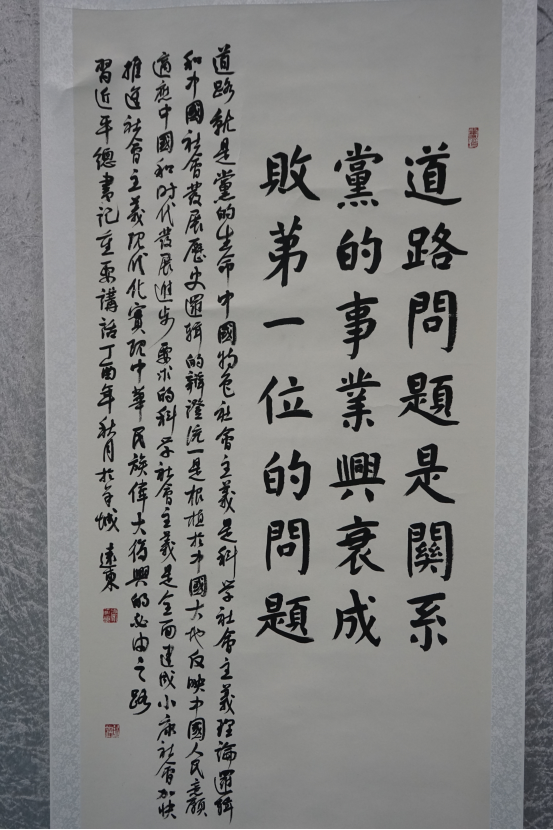 道路問題是關系
黨的事業興衰成
敗第一位的問題
道路就是黨的生命中國特色社會主義是科学社會主義理論邏輯
和中國社會發展歷史邏輯的辯證統一是根植於中國大地反映中國人民意願
適應中國和时代發展進步要求的科学社會主義是全面建成小康社會加快
推進社會主義現代化實現中華民族偉大復興的必由之路
習近平總書記重要講話丁酉年秋月於羊城 遠東